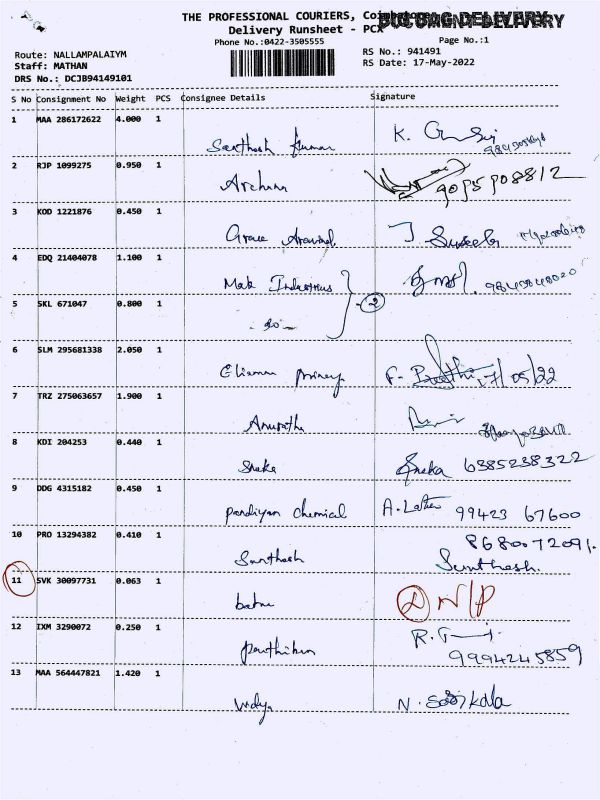 THE PROFESSIONAL COURIERS,
Delivery Runsheet - PCX
Phone No.:0422-3505555
Page No.:1
Route: NALLAMPALAIYM
RS No.: 941491
Staff: MATHAN
RS Date: 17-May-2022
DRS No.: DCJB94149101
S No Consignment No Weight PCS Consignee Details Signature
1 MAA 286172622 4.000 1
Santhosh Kumar K.
2 RJP 1099275 0.950 1
Archana
3 KOD 1221876 0.450 1
Grace Aravind J.
4 EDQ 21404078 1.100 1
Mak Industries
2
5 SKL 671047 0.800 1
-do-
6 SLM 295681338 2.050 1
17/05/22
7 TRZ 275063657 1.900 1
8 KDI 204253 0.440 1
Sneka Sneka 6385238322
9 DDG 4315182 0.450 1
pandiyan chemical A. 99423 67600
10 PRO 13294382 0.410 1
8680072091.
Santhosh Santhosh.
11 SVK 30097731 0.063 1
D N/P
12 IXM 3290072 0.250 1
R.
9994245859
13 MAA 564447821 1.420 1
N. Sasikala